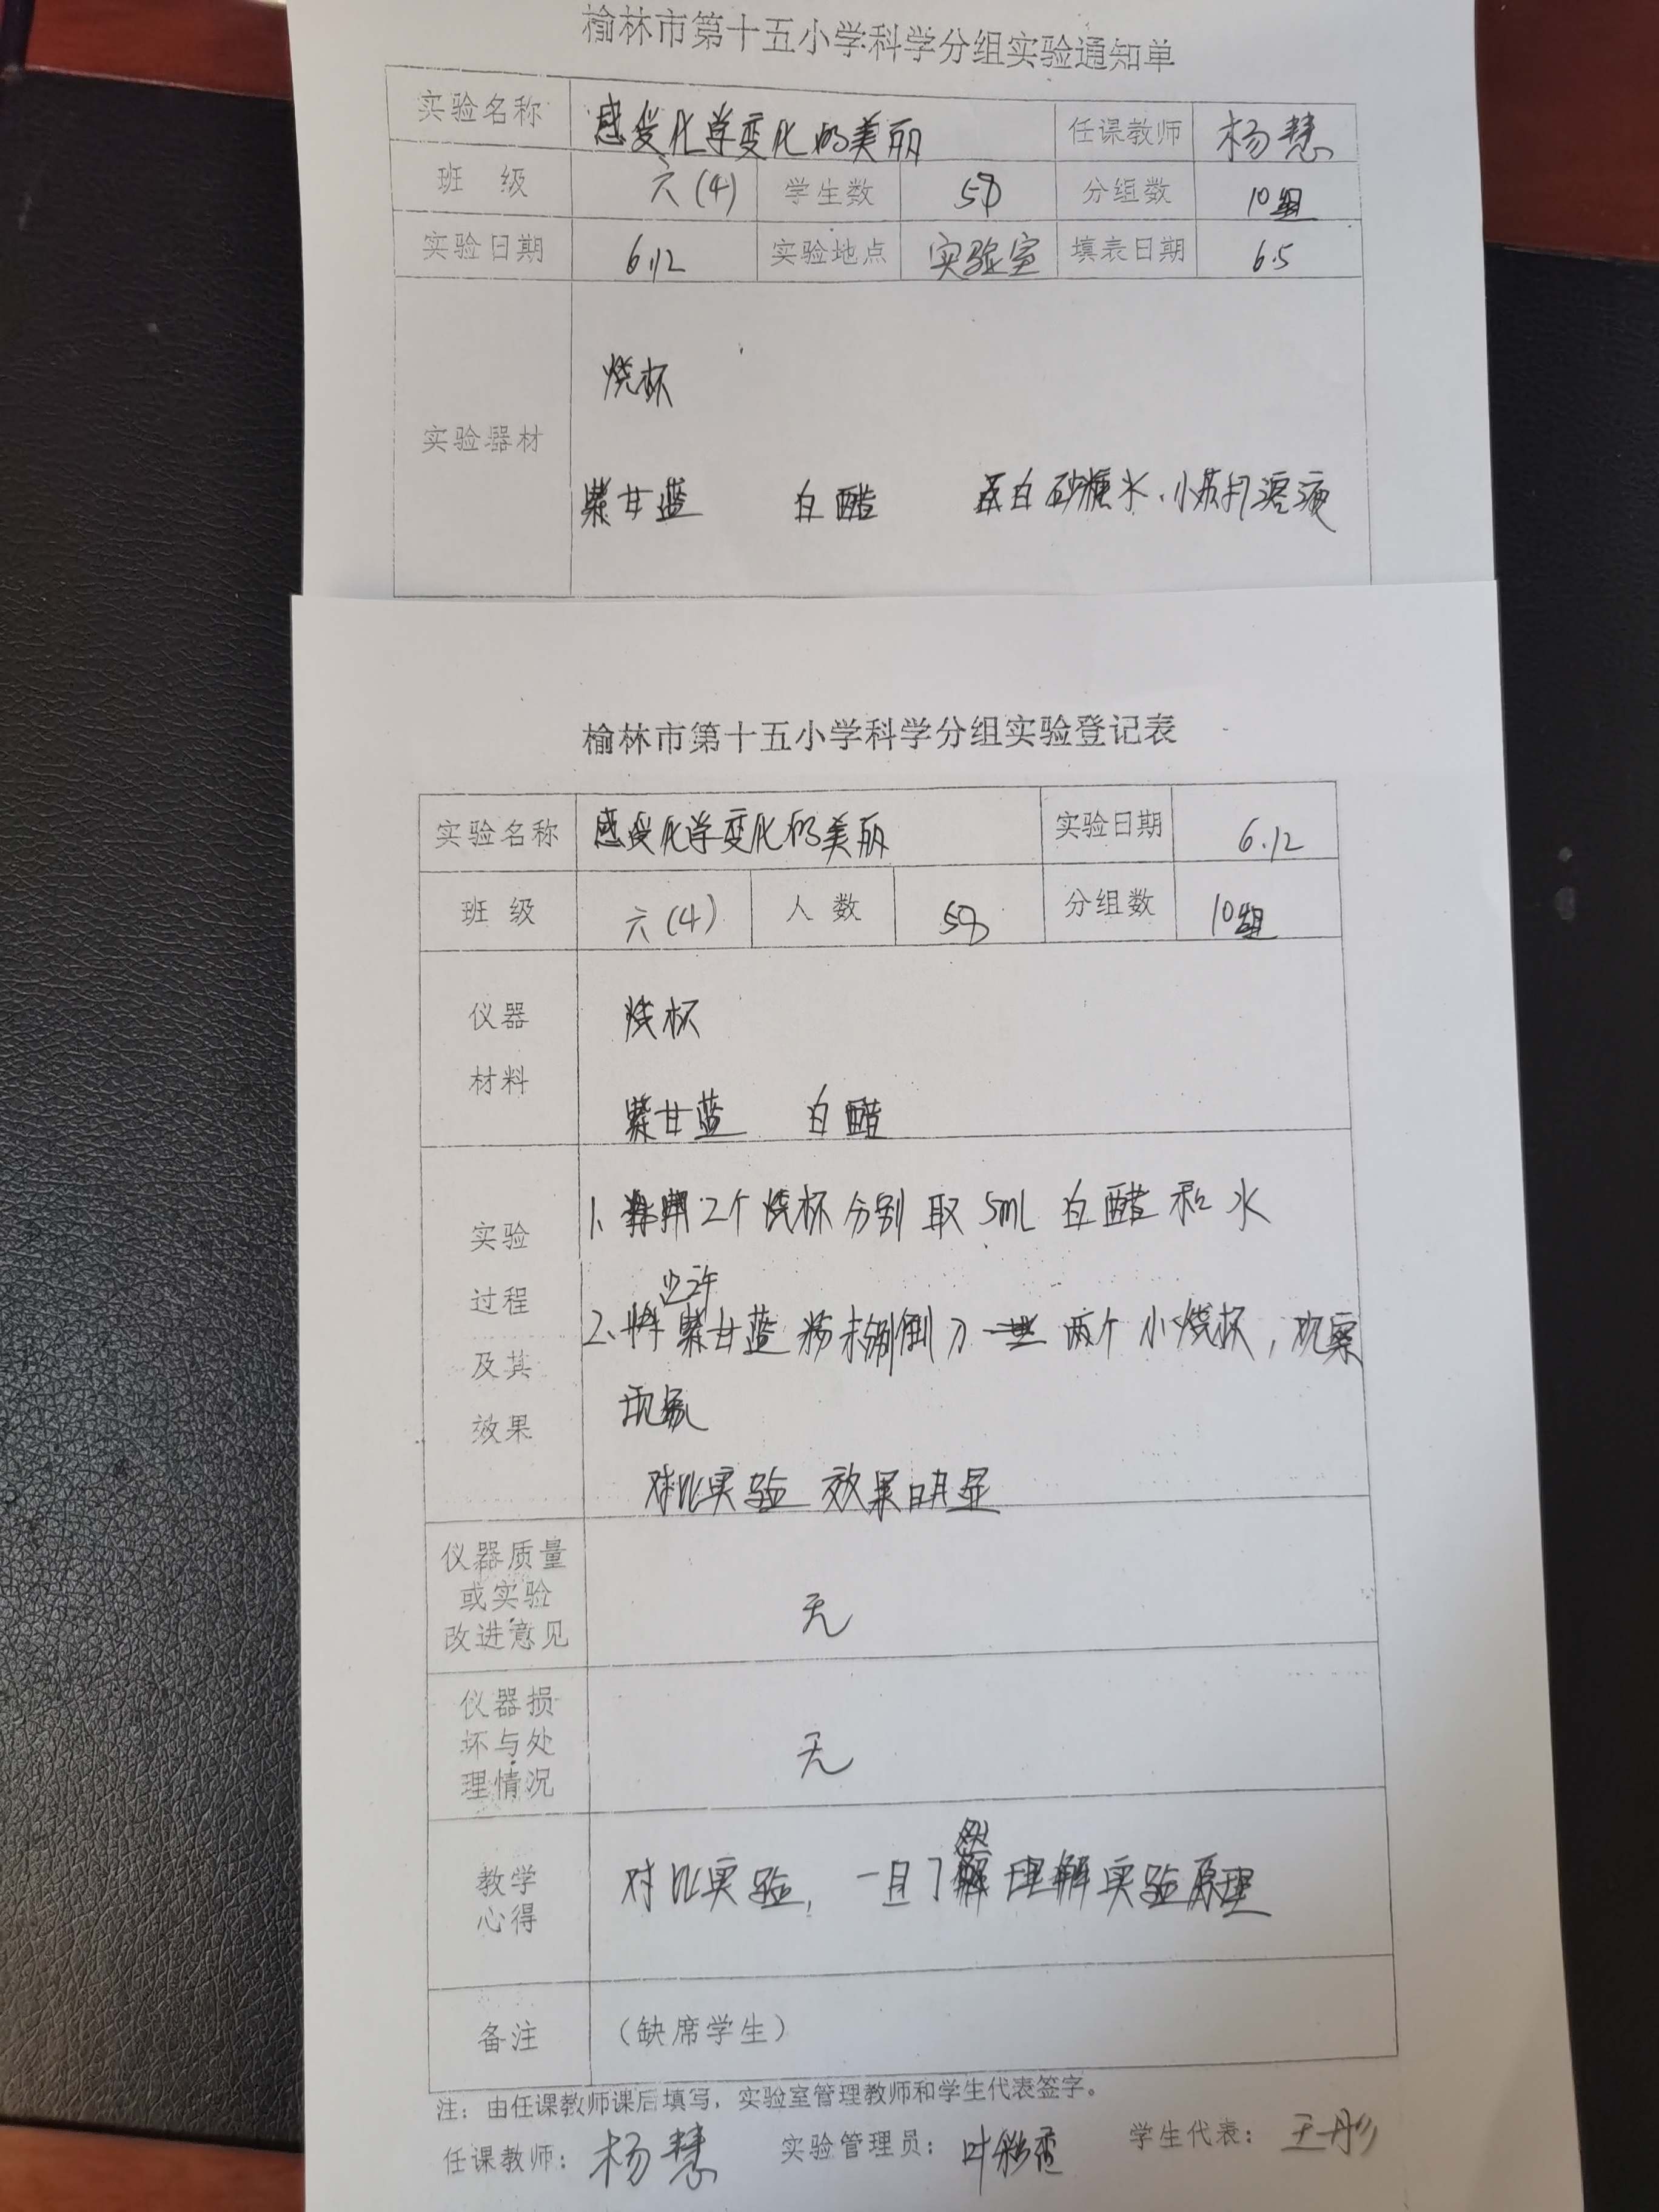 榆林市第十五小学科学分组实验通知单
实验名称 感受化学变化的美丽 任课教师 杨慧
班 级 六(4) 学生数 58 分组数 10组
实验日期 6.12 实验地点 实验室 填表日期 6.5
烧杯
实验器材
紫甘蓝 白醋 白砂糖水、小苏打溶液
榆林市第十五小学科学分组实验登记表
实验名称 感受化学变化的美丽 实验日期 6.12
班 级 六(4) 人 数 58 分组数 10组
仪器 烧杯
材料
紫甘蓝 白醋
1、用2个烧杯分别取5mL白醋和水
实验
过程 少许
2、将紫甘蓝粉末倒入两个小烧杯，观察
及其
现象
效果
对比实验 效果明显
仪器质量
或实验 无
改进意见
仪器损
坏与处 无
理情况
教学 对比实验，一目了然理解实验原理
心得
备注 （缺席学生）
注：由任课教师课后填写，实验室管理教师和学生代表签字。
任课教师：杨慧 实验管理员：叶彩霞 学生代表：王彤